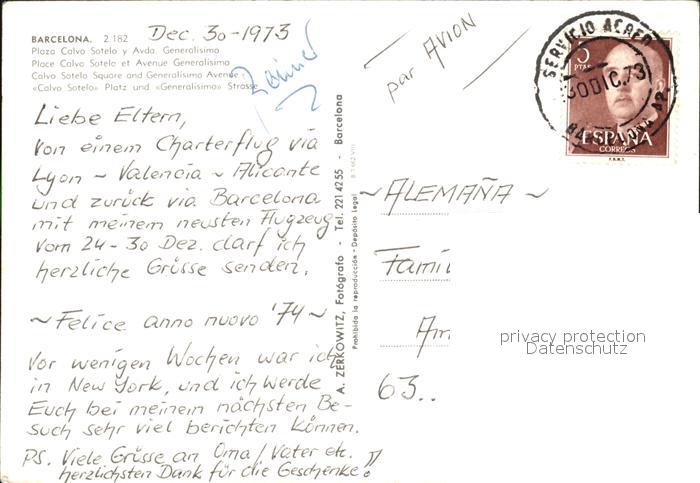 Dec. 30-1973
BARCELONA. 2.182
Plaza Calvo Sotelo y Avda. Generalísimo
Place Calvo Sotelo et Avenue Generalísimo
Calvo Sotelo Square and Generalísimo Avenue
«Calvo Sotelo» Platz und «Generalísimo» Strasse
Liebe Eltern,
von einem Charterflug via
Lyon ~ Valencia ~ Alicante
und zurück via Barcelona
mit meinem neusten Flugzeug
vom 24-30 Dez. darf ich
herzliche Grüsse senden.
~ Felice anno nuovo '74 ~
Vor wenigen Wochen war ich
in New York, und ich werde
Euch bei meinem nächsten Be-
such sehr viel berichten können.
PS. Viele Grüsse an Oma/Vater etc.
herzlichsten Dank für die Geschenke!
A. ZERKOWITZ, Fotógrafo - Tel. 221 42 55 - Barcelona
Prohibida la reproducción - Depósito legal B. 1.662-VIII
par AVION
SERVICIO AEREO
30 DIC. 73
BARCELONA AP.
5
PTAS
ESPAÑA
CORREOS
F.N.M.T.
~ ALEMAÑA ~
Famil
Am
63..
privacy protection
Datenschutz